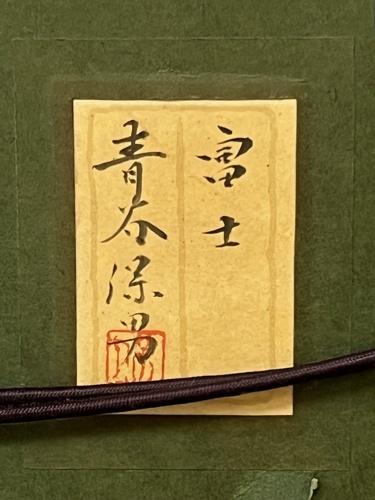 富士
青谷保男